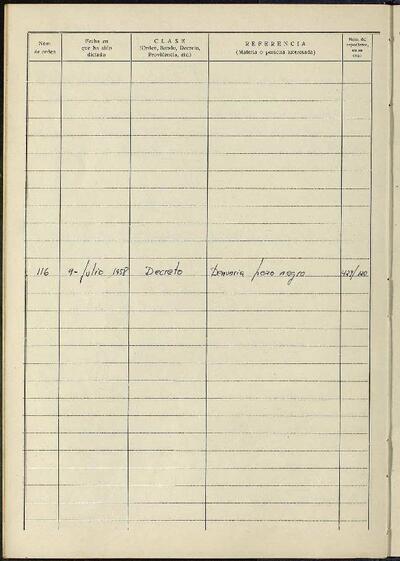 Núm. de orden
Fecha en que ha sido dictado
CLASE (Orden, Bando, Decreto, Providencia, etc.)
REFERENCIA (Materia o persona interesada)
Núm. de expediente, en su caso
116 9- Julio 1958 Decreto Denuncia pozo negro